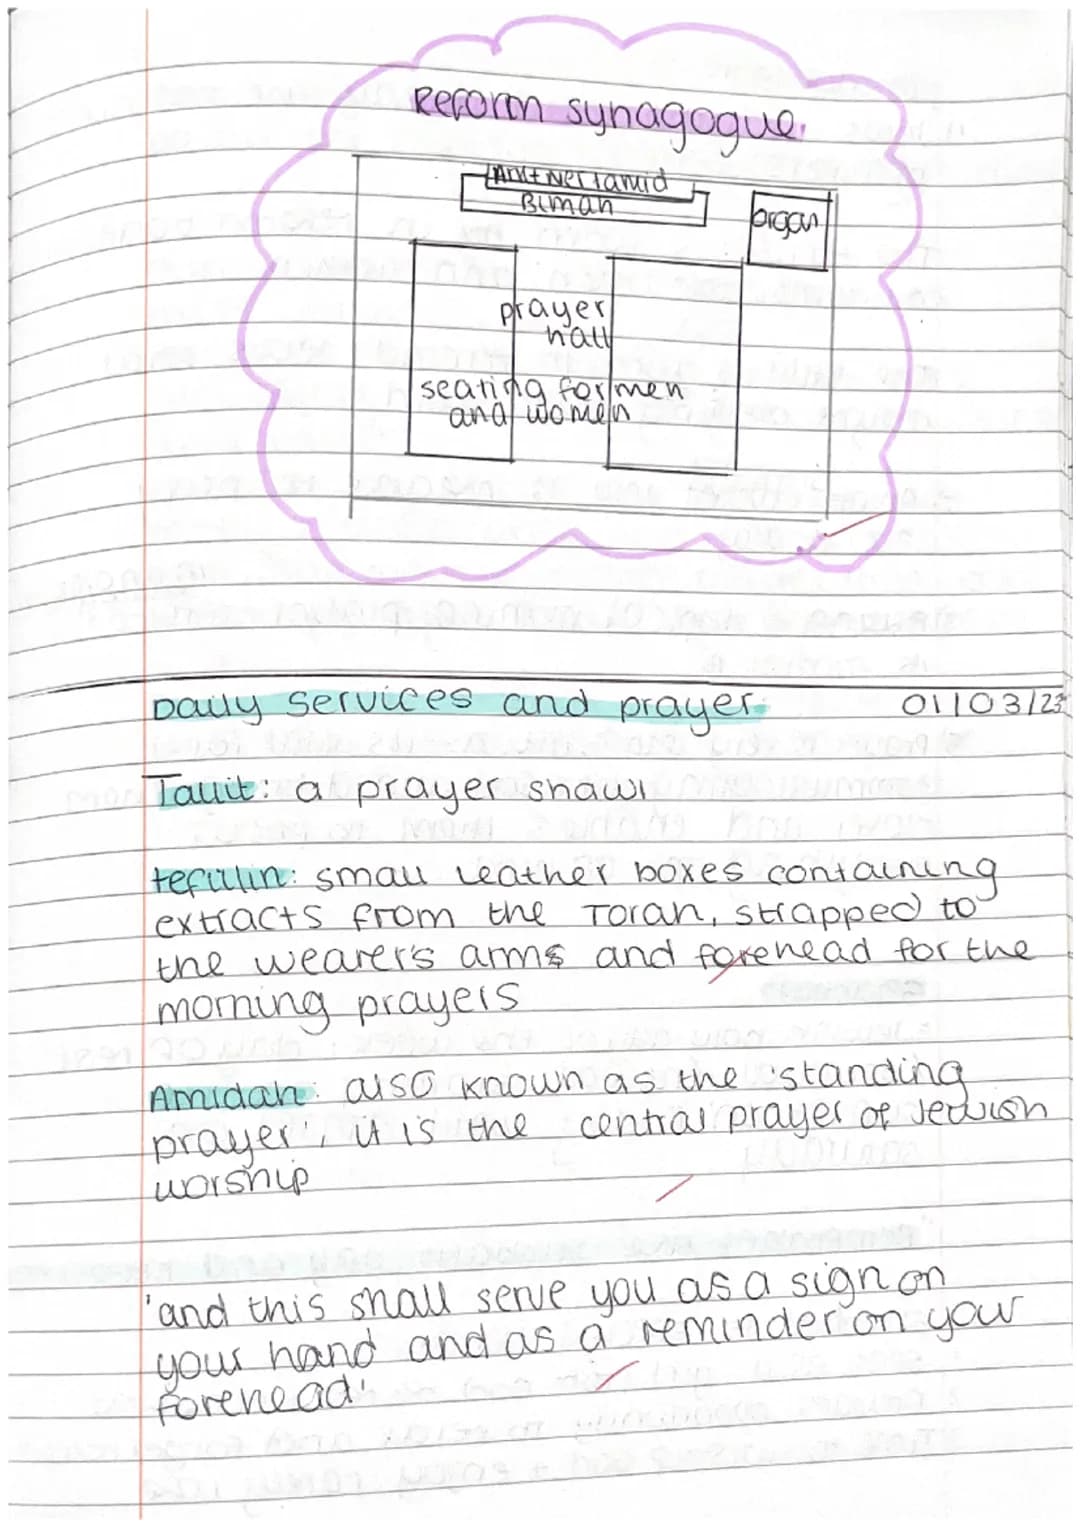 Reform synagogue
Ark + Ner tamid
Bimah
organ
prayer
hall
seating for men
and women
Daily services and prayer 01/03/23
Tallit: a prayer shawl
tefillin: small leather boxes containing
extracts from the Torah, strapped to
the wearer's arms and forehead for the
morning prayers
Amidah: also known as the 'standing
prayer', it is the central prayer of Jewish
worship
'and this shall serve you as a sign on
your hand and as a reminder on your
forehead'